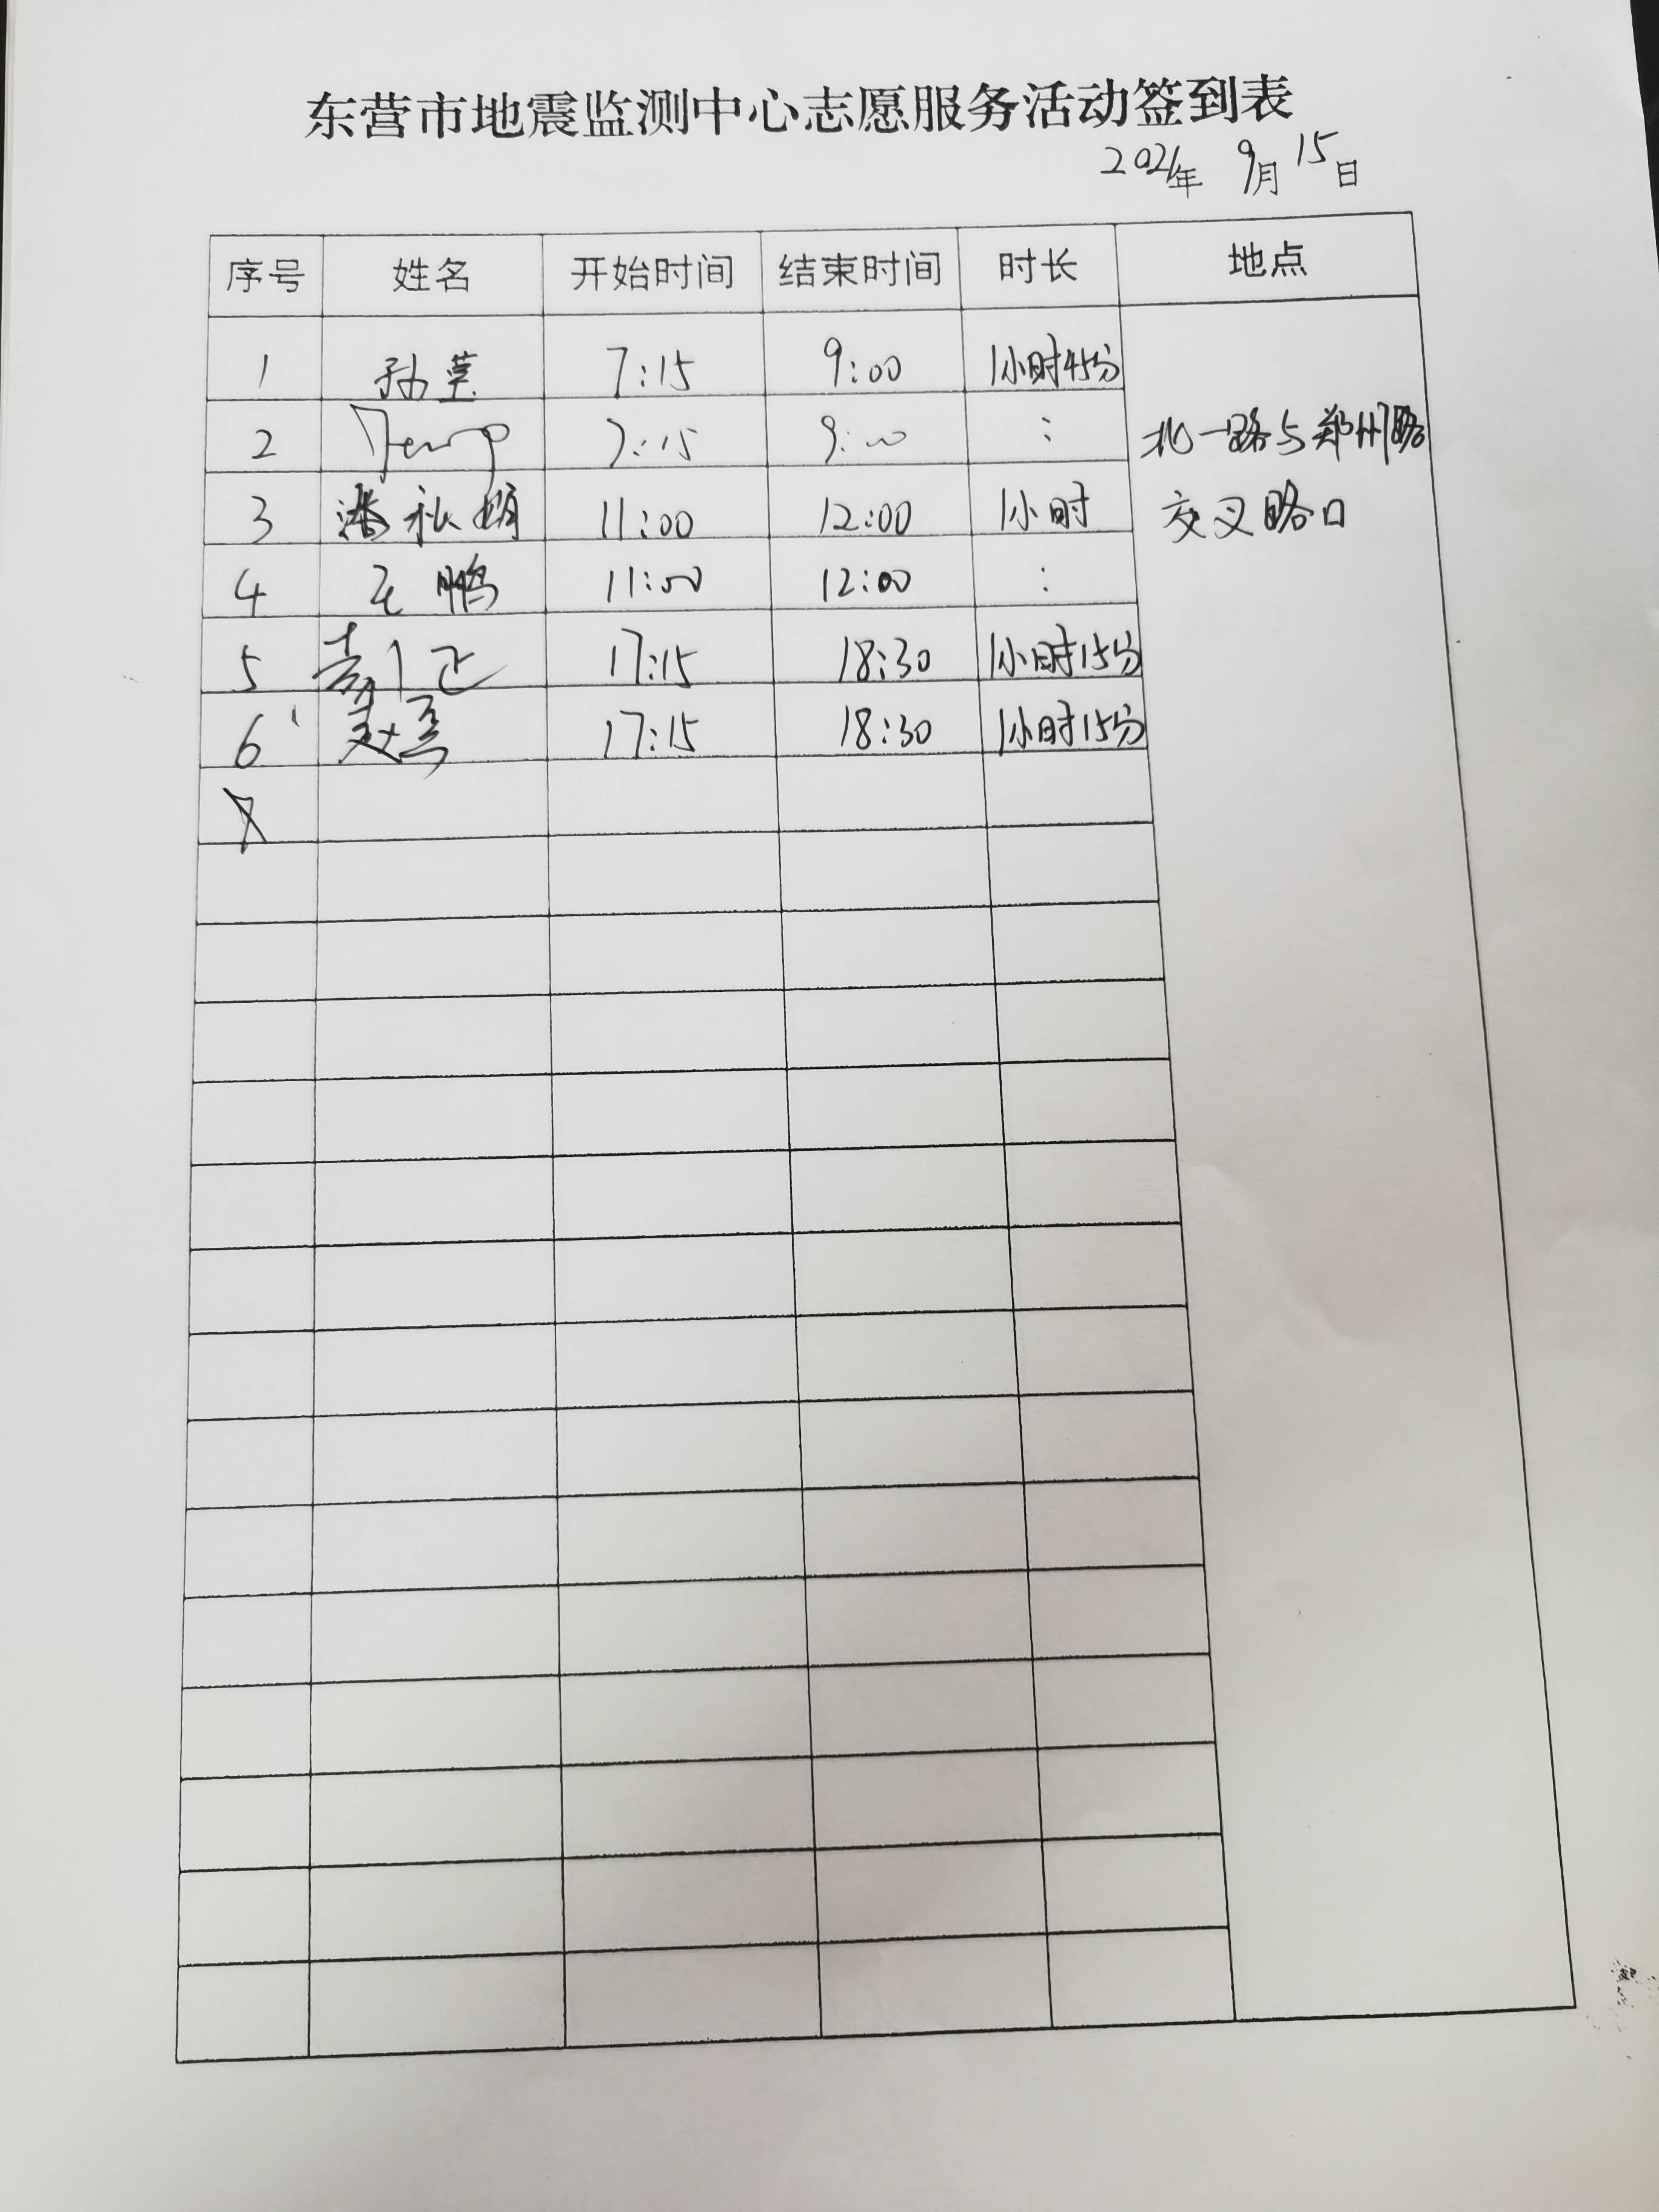 东营市地震监测中心志愿服务活动签到表
2021年 9月15日
序号 姓名 开始时间 结束时间 时长 地点
1 孙莹 7:15 9:00 1小时45分
2 7:15 9:00 :
北一路与郑州路
3 潘秋娟 11:00 12:00 1小时
交叉路口
4 王鹏 11:00 12:00 :
5 17:15 18:30 1小时15分
6 17:15 18:30 1小时15分